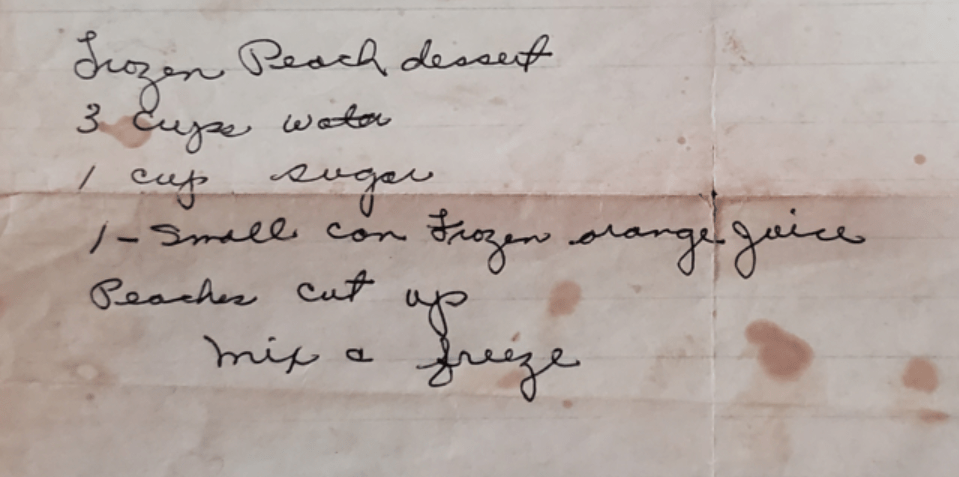 Frozen Peach dessert
3 Cups water
1 cup sugar
1- Small can Frozen orange juice
Peaches cut up
mix & freeze